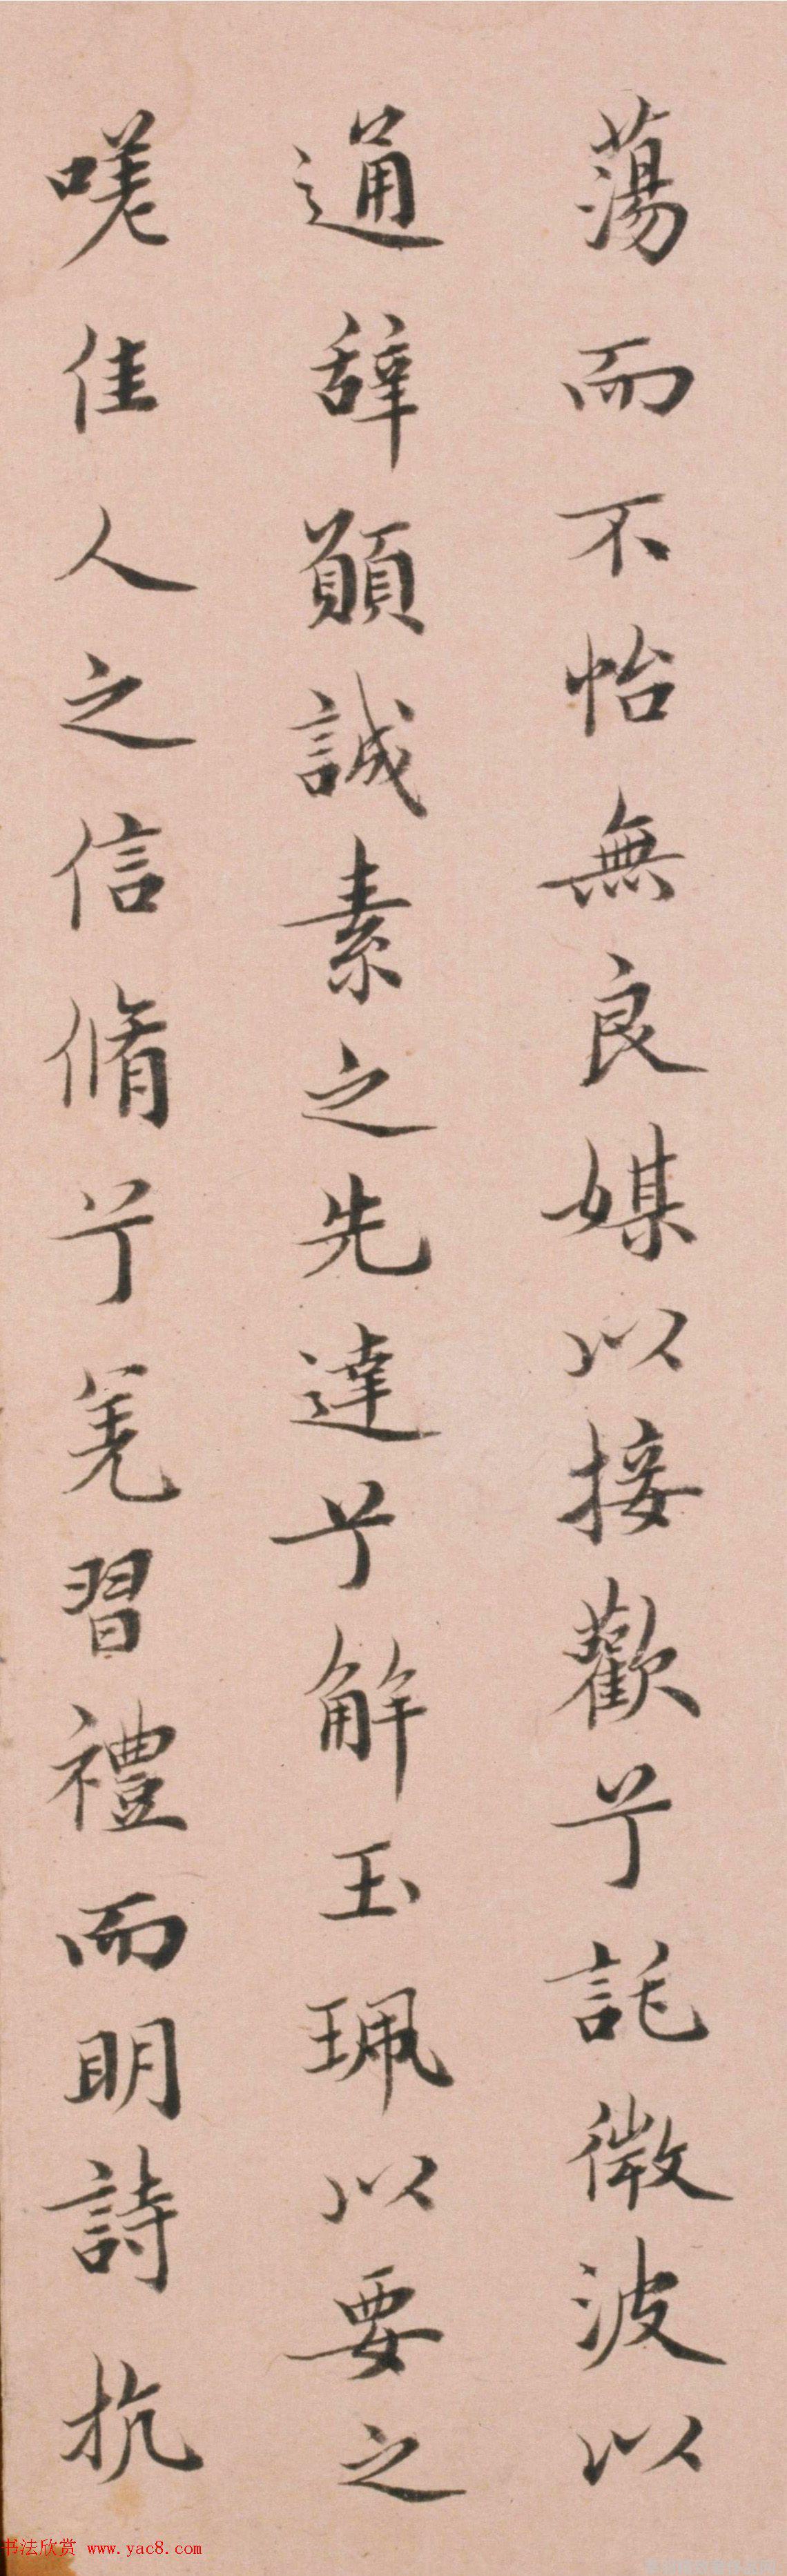 蕩而不怡無良媒以接歡兮託微波以
通辭願誠素之先達兮解玉珮以要之
嗟佳人之信脩兮羌習禮而明詩抗
书法欣赏 www.yac8.com